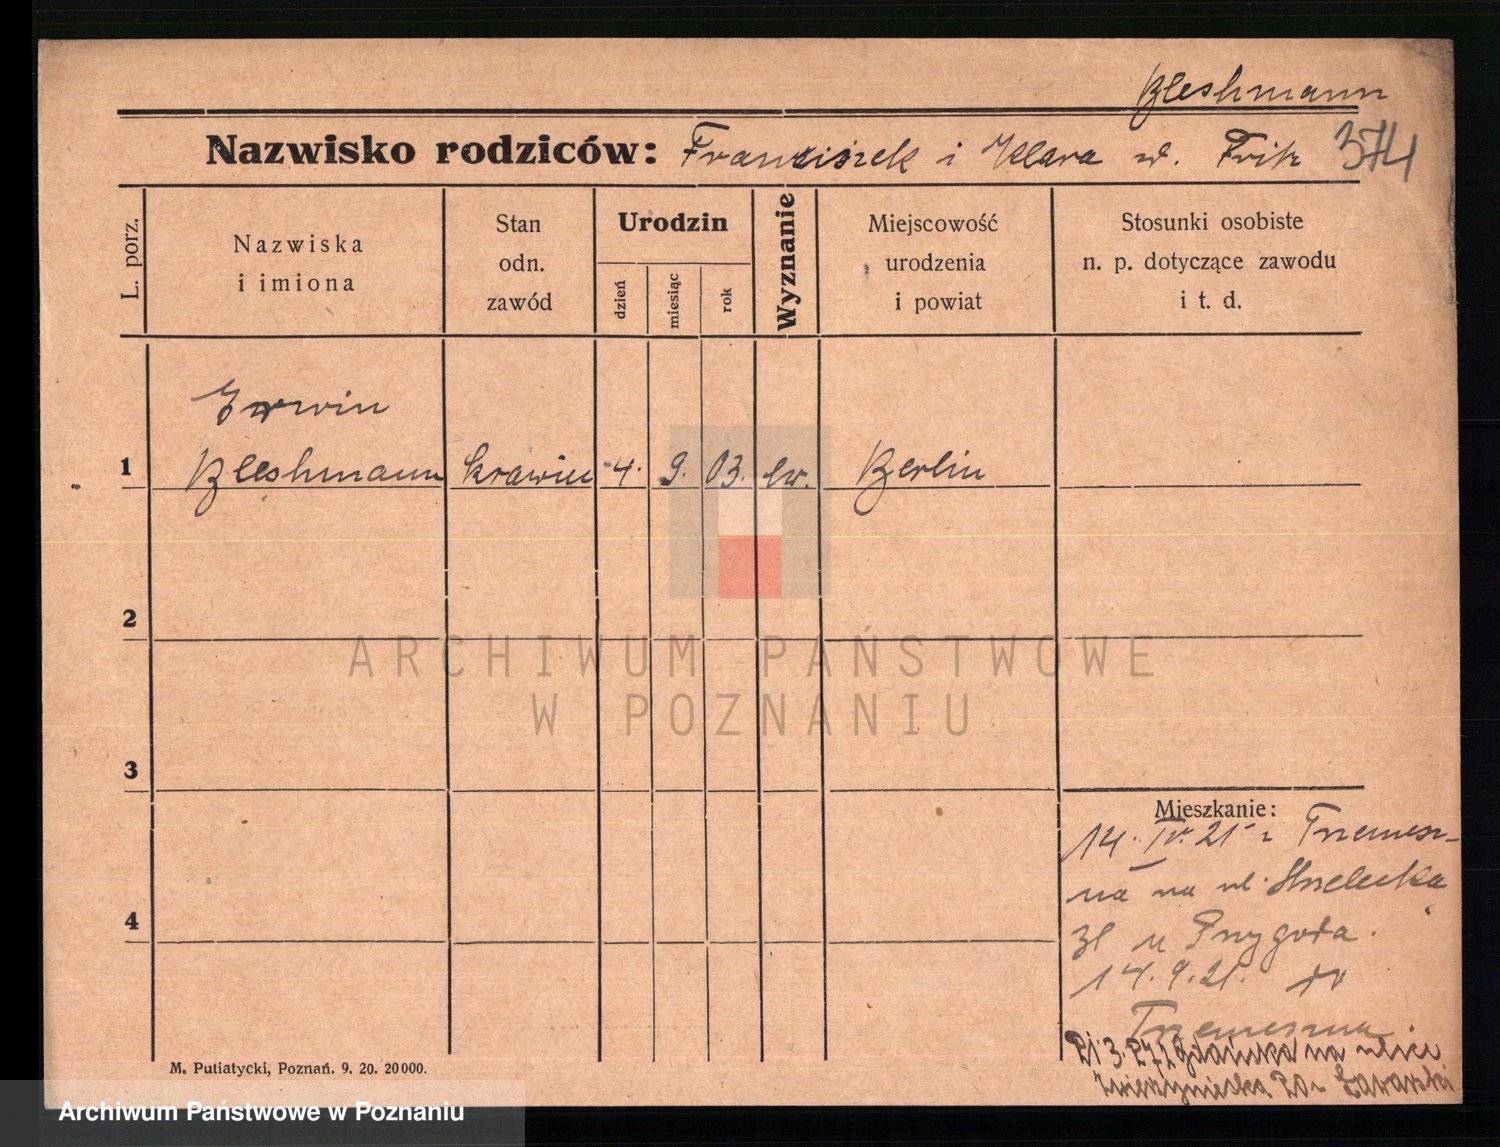 Bleshmann
Nazwisko rodziców: Franciszek i Klara ur. Frik 374
L. porz.
Nazwiska
i imiona
Stan
odn.
zawód
Urodzin
dzień
miesiąc
rok
Wyznanie
Miejscowość
urodzenia
i powiat
Stosunki osobiste
n. p. dotyczące zawodu
i t. d.
Erwin
1 Bleshmann krawiec 4. 9. 03. ew. Berlin
2
3
4
Mieszkanie:
14. IV. 21 z Trzemesz-
na na ul. Strzelecka
31 u Przygoda.
14. 9. 21. do
Trzemeszna
21. 3. 27 z Gdańska na ulice
Zwierzyniecka 20
M. Putiatycki, Poznań. 9. 20. 20000.
ARCHIWUM PAŃSTWOWE
W POZNANIU
Archiwum Państwowe w Poznaniu